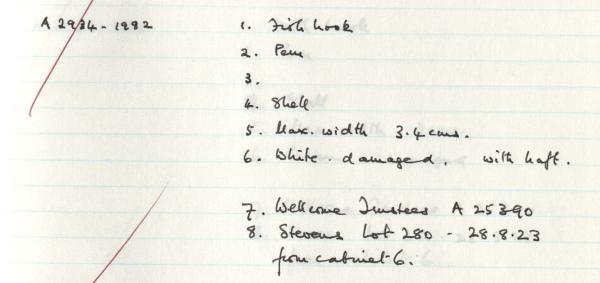 A 2934-1982
1. Fish hook
2. Peru
3.
4. Shell
5. Max. width 3.4 cms.
6. White. damaged. with haft.
7. Wellcome Trustees A 25390
8. Stevens Lot 280 - 28.8.23
from cabinet 6.